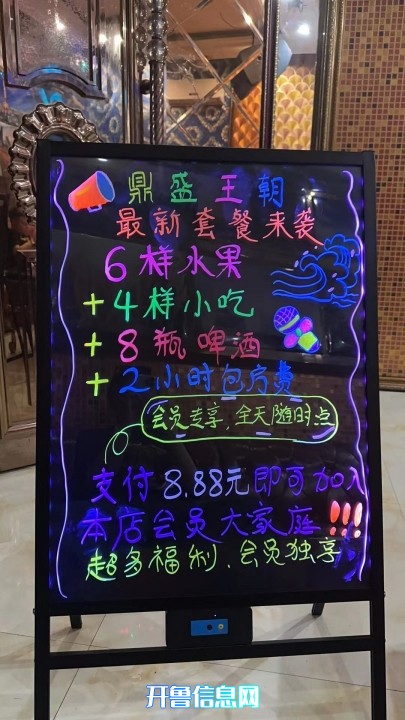 鼎盛王朝
最新套餐来袭
6样水果
+4样小吃
+8瓶啤酒
+2小时包房费
会员专享,全天随时点
支付8.88元即可加入
本店会员大家庭!!!
超多福利、会员独享
开鲁信息网